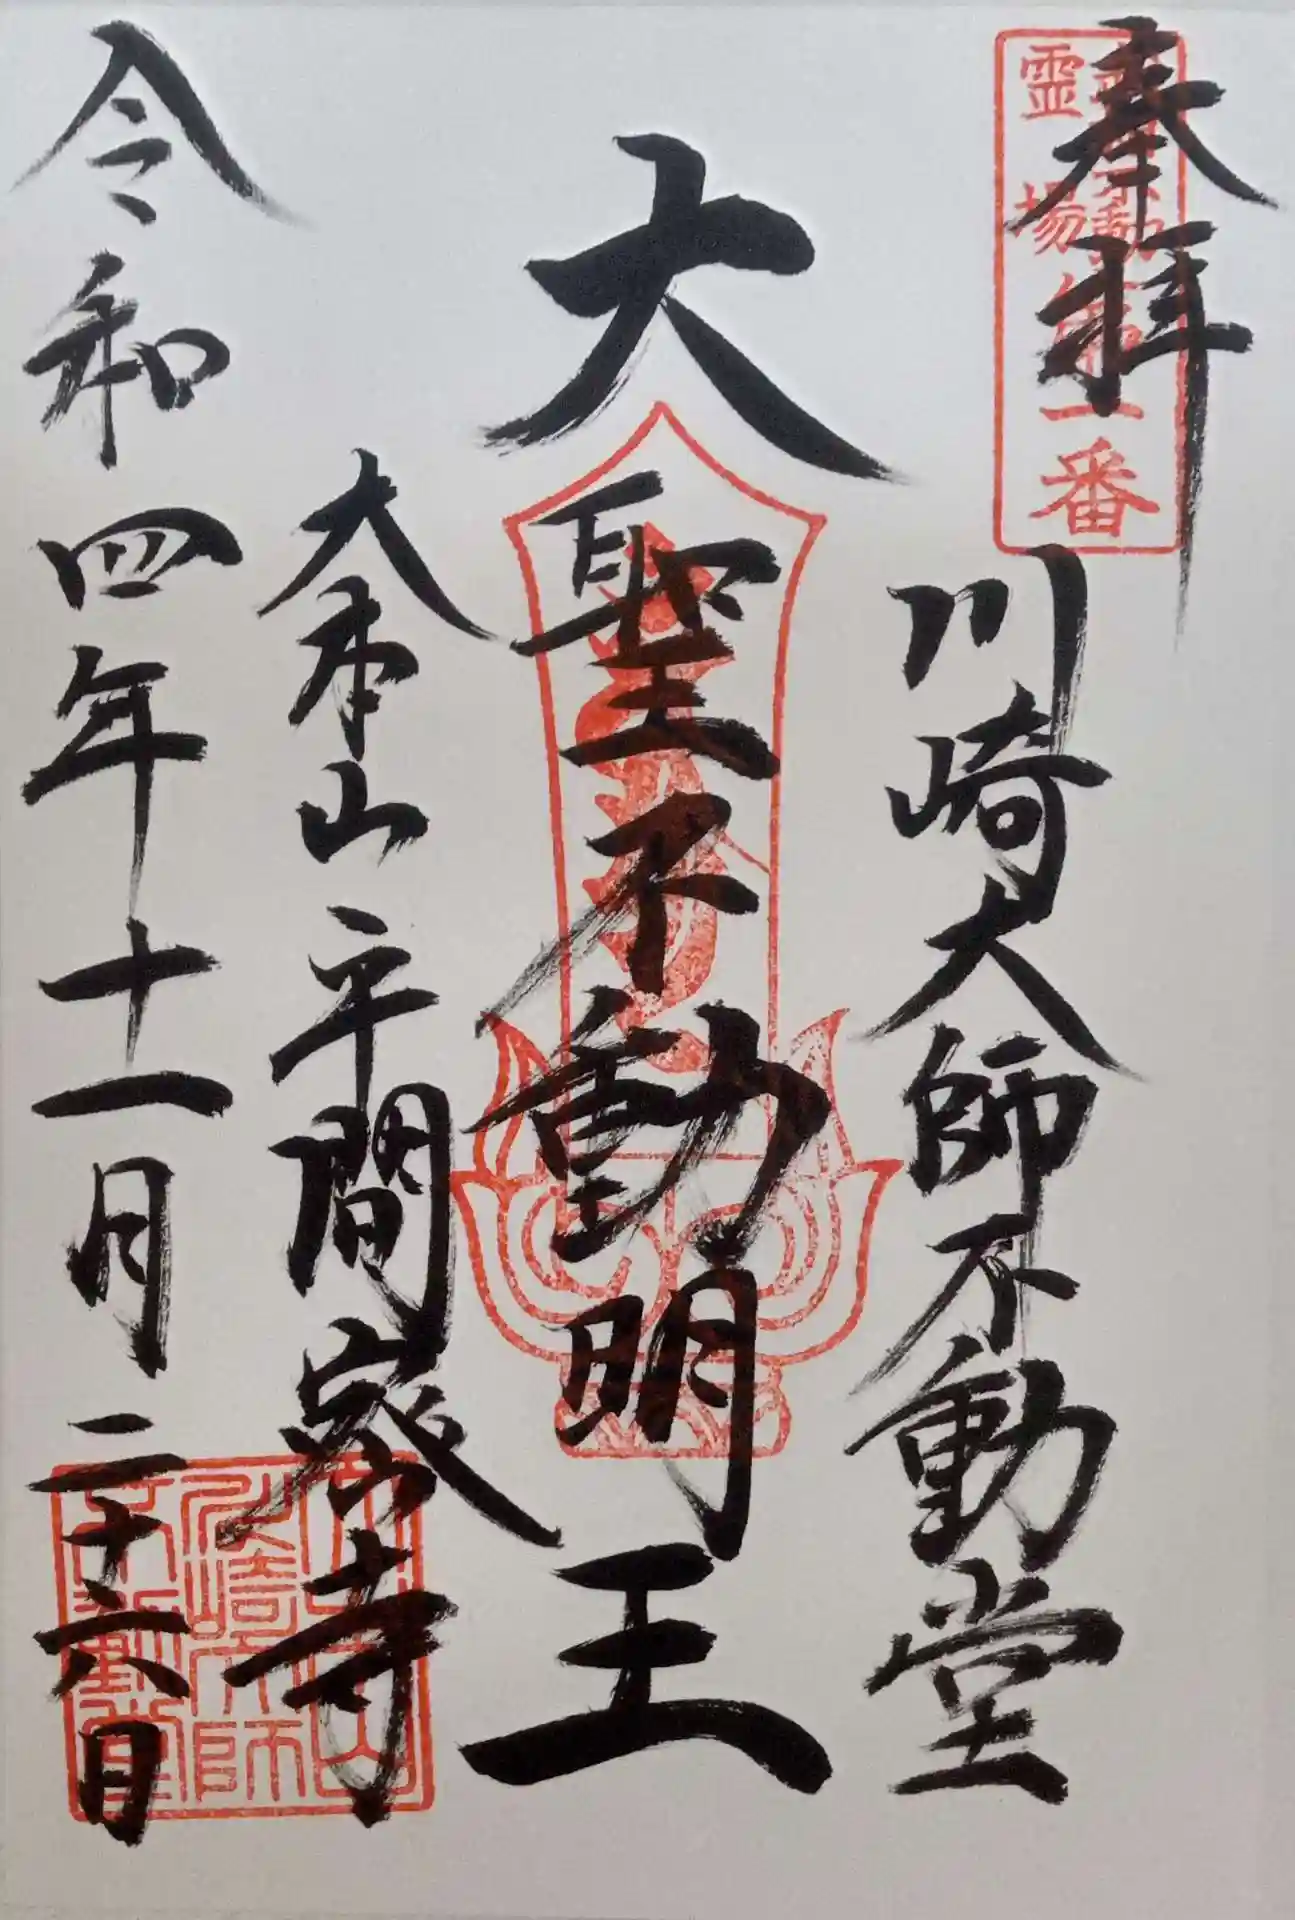 奉拝
霊場
一番
川崎大師不動堂
大聖不動明王
大本山平間寺
令和四年十一月二十六日
川崎大師